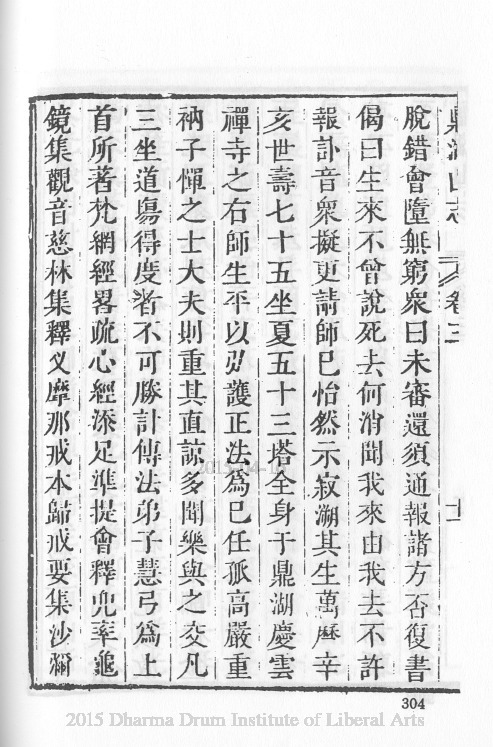 鼎湖山志 卷三 十一
脫錯會墮無窮衆曰未審還須通報諸方否復書
偈曰生來不曾說死去何消聞我來由我去不許
報訃音衆擬更請師巳怡然示寂溯其生萬曆辛
亥世壽七十五坐夏五十三塔全身于鼎湖慶雲
禪寺之右師生平以弘護正法爲巳任孤高嚴重
衲子憚之士大夫則重其直諒多聞樂與之交凡
三坐道塲得度者不可勝計傳法弟子慧弓爲上
首所著梵網經畧疏心經添足準提會釋兜率龜
鏡集觀音慈林集釋义摩那戒本歸戒要集沙彌
304
2015 Dharma Drum Institute of Liberal Arts